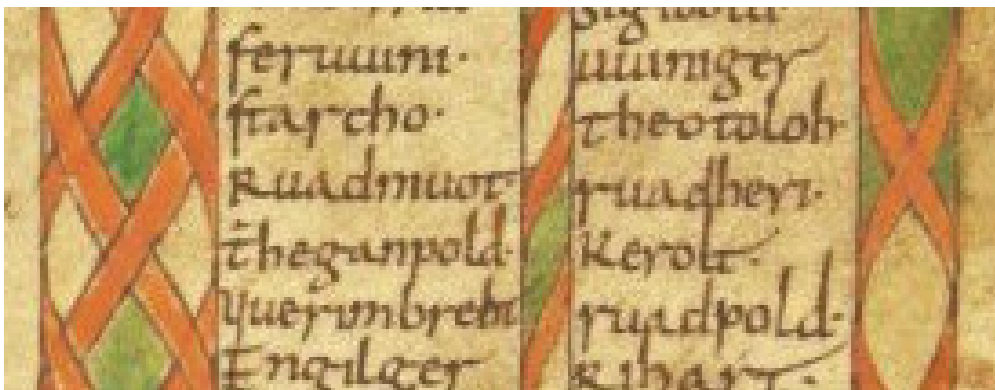 feruuuni·
starcho·
Ruadmuot·
theganpold·
Querimbreht
Engilger
uuiniger
theotoloh·
ruadheri·
Kerolt·
ruadpold·
Rihart·